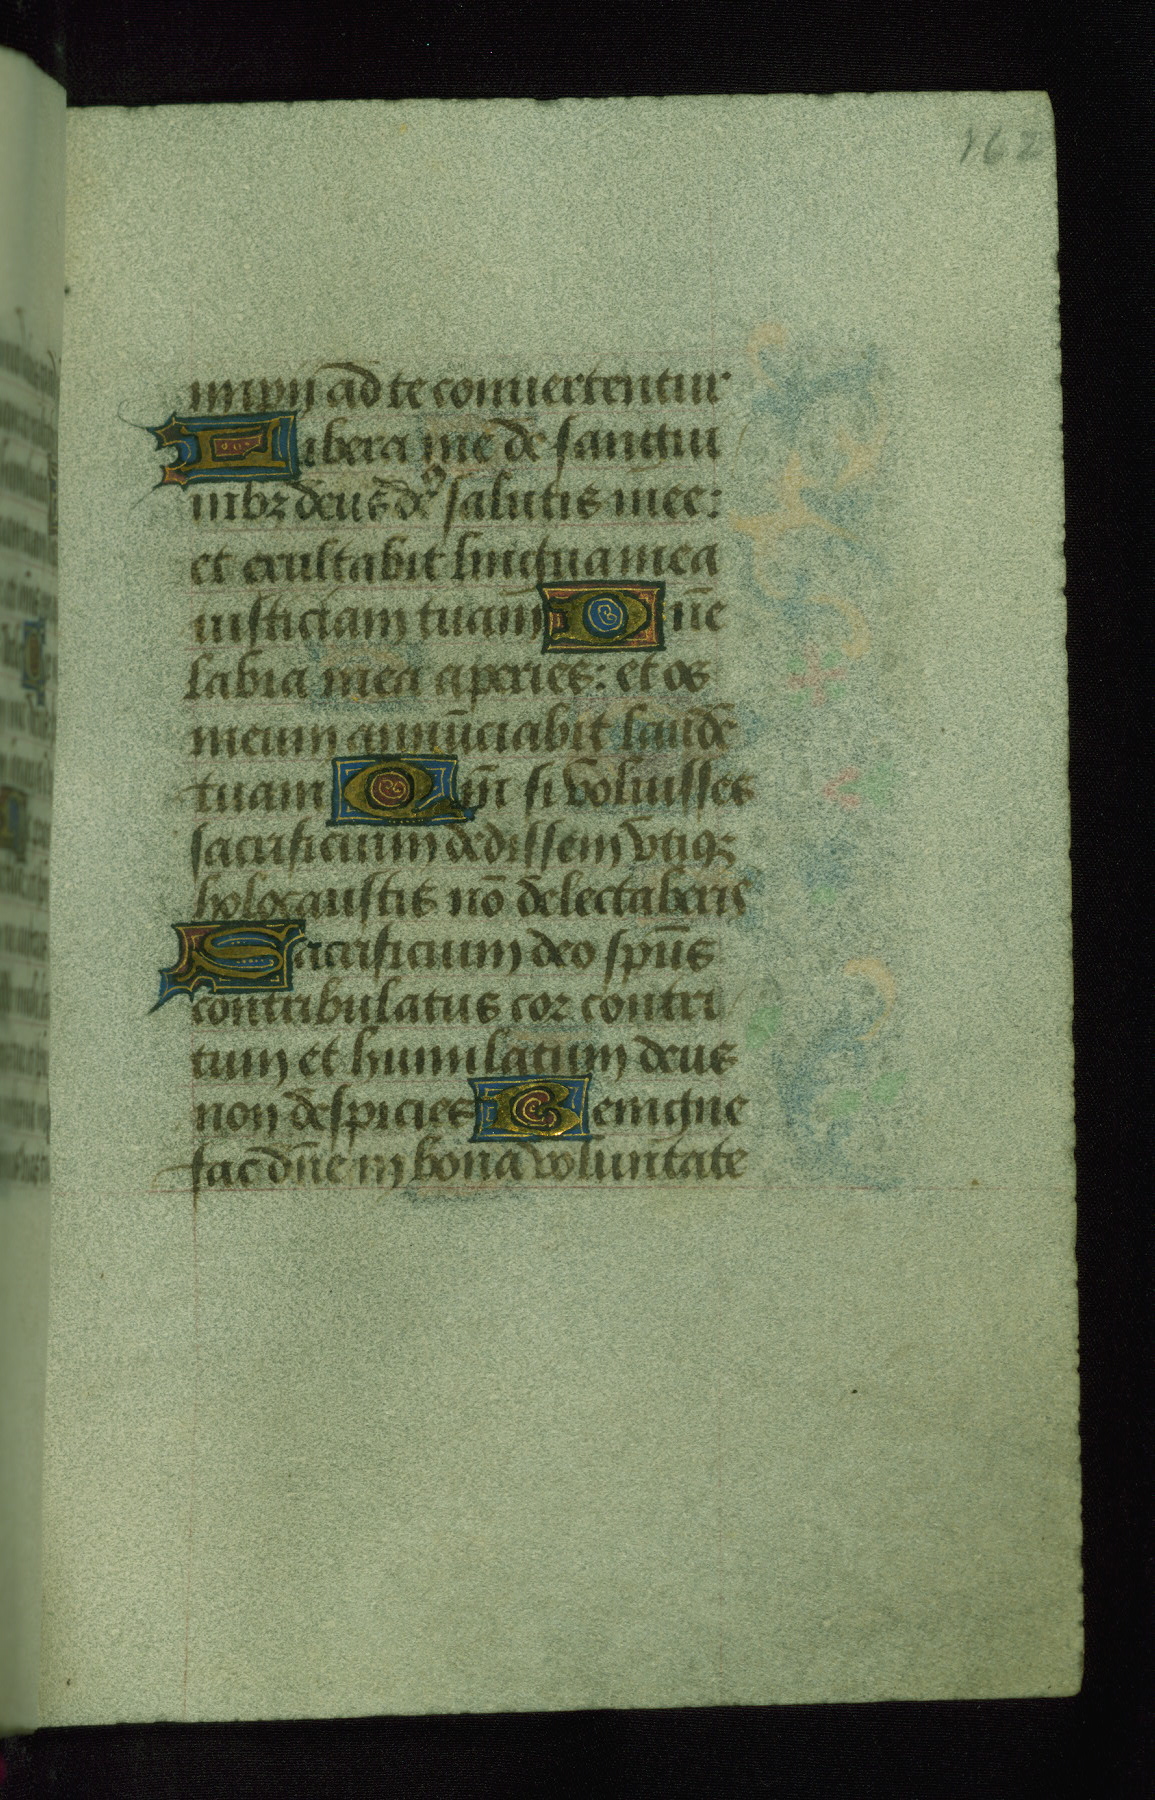 162
impii ad te conuertentur
Libera me de sangui
nibꝫ deus deꝰ salutis mee:
et exultabit lingua mea
iusticiam tuam Dn̄e
labia mea aperies: et os
meum annūciabit laudē
tuam Qm̄ si voluisses
sacrificium dedissem vtiqꝫ
holocaustis nō delectaberis
Sacrificium deo spūs
contribulatus cor contri
tum et humilatum deus
non despicies Benigne
fac dn̄e in bona voluntate